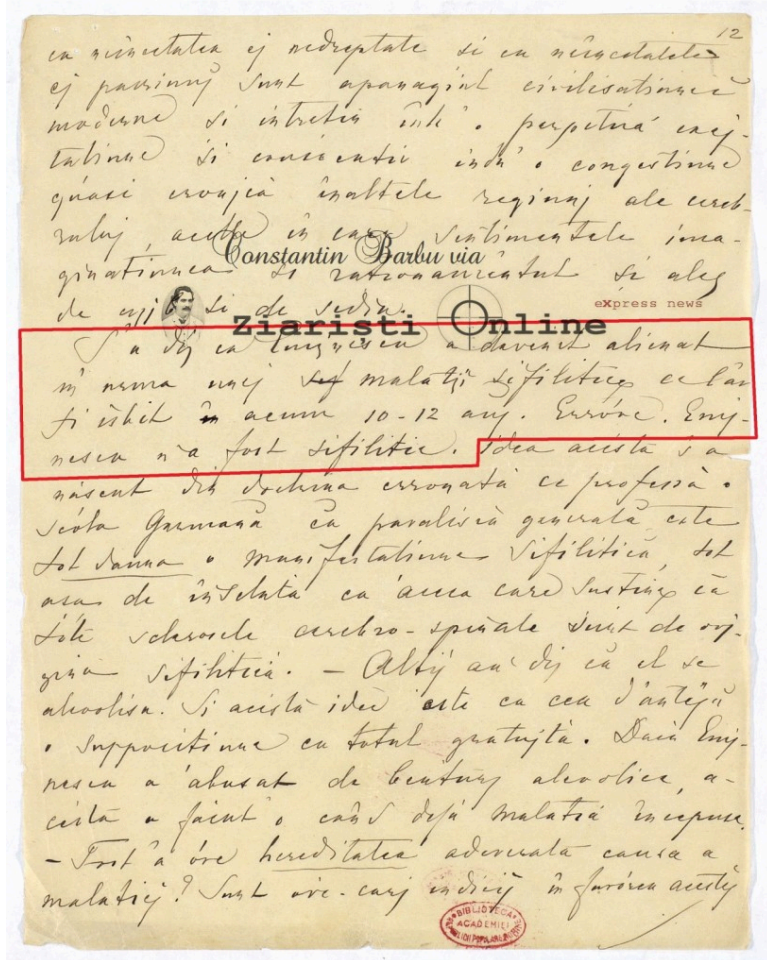 12
cu necuetatea ej nedreptate si cu necuetatele
ej passiunj sunt apanagiul civilisatiuneĭ
moderne si intretin intr' o perpetuá exci-
tatiune si consecutiv intr' o congestiune
quasi cronică înaltele regiunj ale cereb-
rulŭj, acelle in care sentimentele ima-
Constantin Barbu via
ginatiunea si rationamentul si aleg
express news
de si de sediu.
Ziaristi Online
S'a dis ca Eminescu a devenit alienat
in urma unej malatij sifilitice ce l'ar
fi isbit acum 10-12 anj. Erróre. Emi-
nescu n'a fost sifilitic. Idea acésta s'a
născut din doctrina erronată ce professă o
scóla Germană că paralisia generală este
tot dauna o manifestatiune sifilitică, tot
asa de înselată ca aceea care sustine că
tóte sclerosele cerebro-spinale sunt de ori-
gina sifilitică. - Altij au dis că el se
alcoolisa. Si acéstă idee este ca cea d'antêjŭ
o suppositiune cu totul gratujtă. Dacă Emi-
nescu a abusat de beuturj alcoolice, a-
césta a făcut'o când deja malatia incepuse.
- Fost'a óre hereditatea adeverata causa a
malatiej? Sunt óre-carj indicij în favórea acestej
BIBLIOTECA
ACADEMIEI